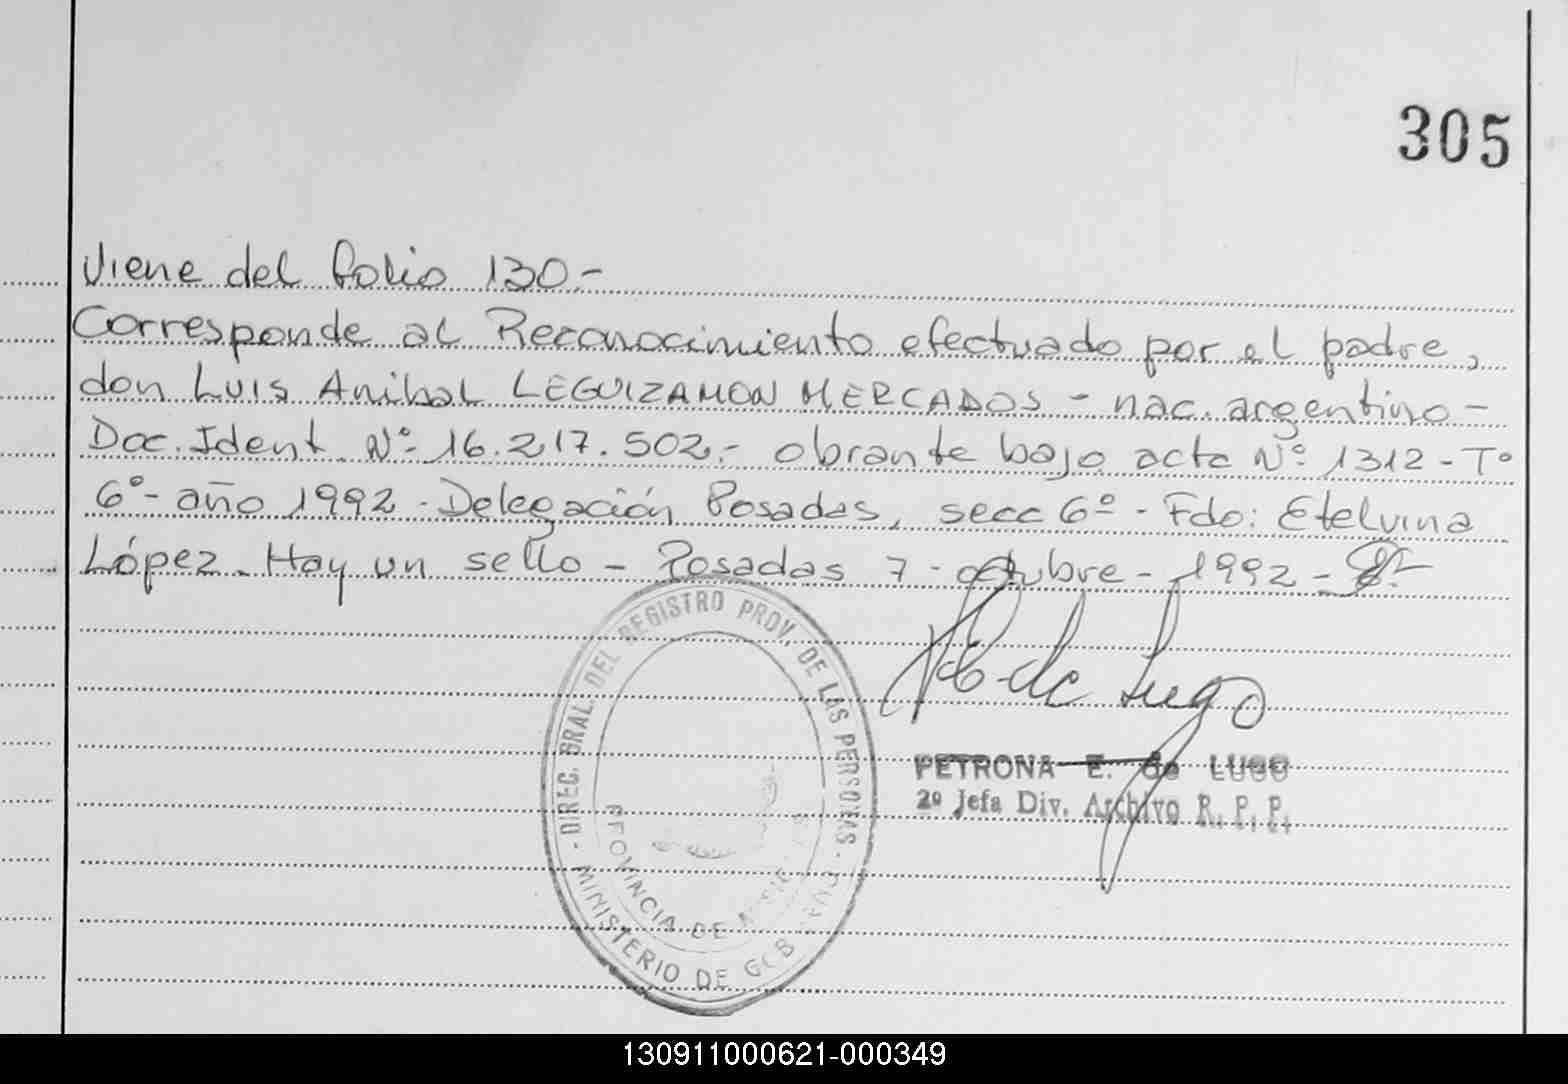 305
Viene del folio 130.-
Corresponde al Reconocimiento efectuado por el padre,
don Luis Anibal LEGUIZAMON MERCADOS - nac. argentino -
Doc. Ident. Nº 16.217.502.- obrante bajo acta Nº 1312 - Tº
6º - año 1992 - Delegación Posadas, secc 6º - Fdo: Etelvina
López. Hay un sello - Posadas 7 - octubre - 1992 -
de Lugo
PETRONA E. de LUGO
2º Jefa Div. Archivo R. P. P.
- DIREC. GRAL. DEL REGISTRO PROV. DE LAS PERSONAS -
PROVINCIA DE
MINISTERIO DE GOB
130911000621-000349